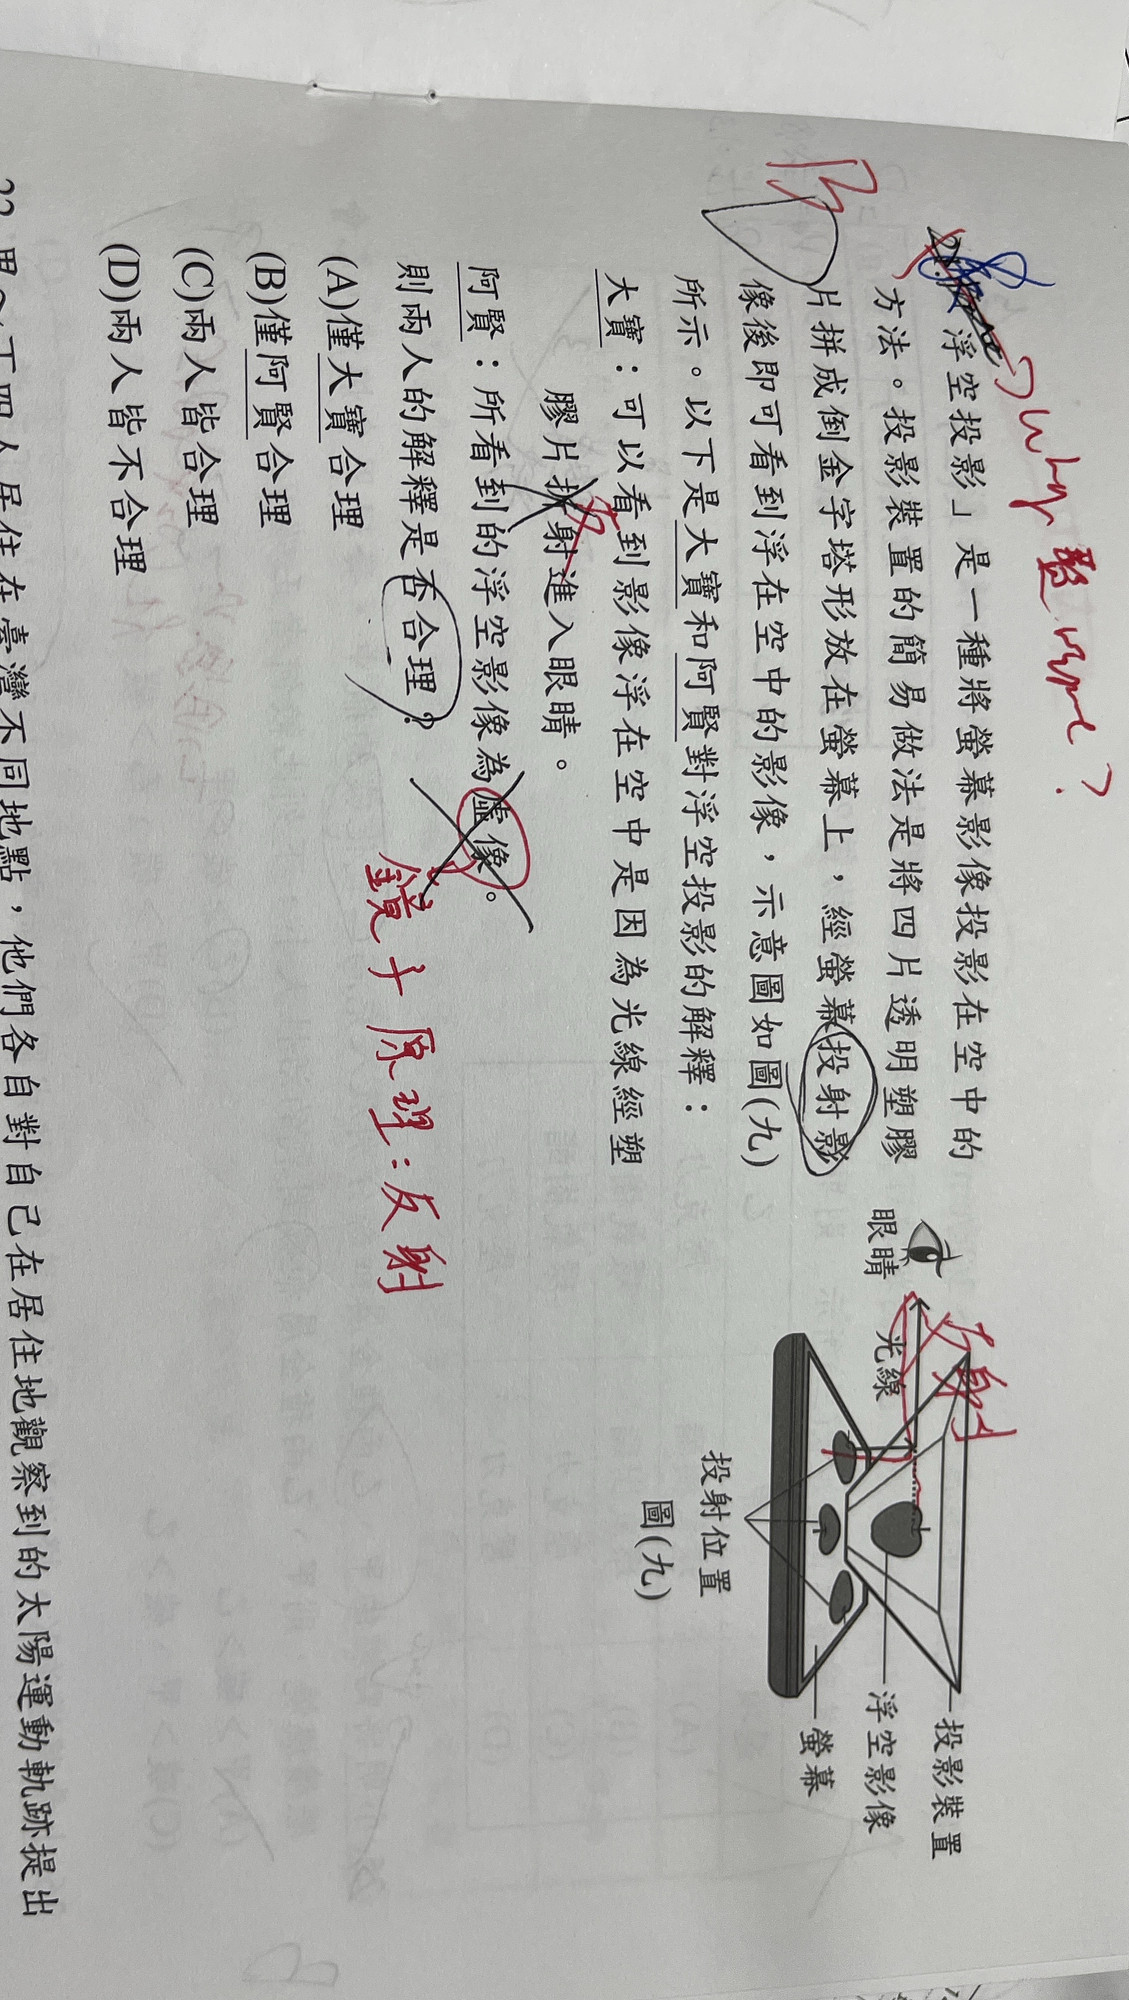 why 是 virtual?
「浮空投影」是一種將螢幕影像投影在空中的
方法。投影裝置的簡易做法是將四片透明塑膠
片拼成倒金字塔形放在螢幕上，經螢幕投射影
像後即可看到浮在空中的影像，示意圖如圖(九)
所示。以下是大寶和阿賢對浮空投影的解釋：
大寶：可以看到影像浮在空中是因為光線經塑
膠片折射進入眼睛。
反
阿賢：所看到的浮空影像為虛像。
則兩人的解釋是否合理？
鏡子原理：反射
(A)僅大寶合理
(B)僅阿賢合理
(C)兩人皆合理
(D)兩人皆不合理
反射
眼睛
光線
投影裝置
浮空影像
螢幕
投射位置
圖(九)
四人居住在臺灣不同地點，他們各自對自己在居住地觀察到的太陽運動軌跡提出